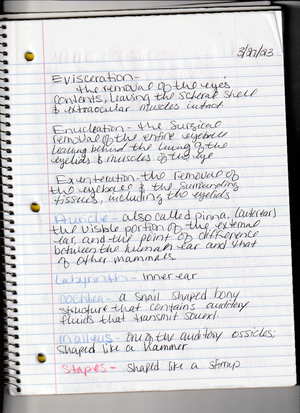 3/27/23
Evisceration-
the removal of the eye's
contents, leaving the scleral shell
& extraocular muscles intact
Enucleation- the surgical
removal of the entire eyeball
leaving behind the lining of the
eyelids & muscles of the eye
Exenteration- the removal of
the eyeball & the surrounding
tissues, including the eyelids
Auricle- also called pinna, (outer ear)
the visible portion of the external
ear, and the point of difference
between the human ear and that
of other mammals
Labyrinth- inner ear
cochlea- a snail shaped bony
structure that contains auditory
fluids that transmit sound
malleus- one of the auditory ossicles;
shaped like a hammer
Stapes- shaped like a stirrup